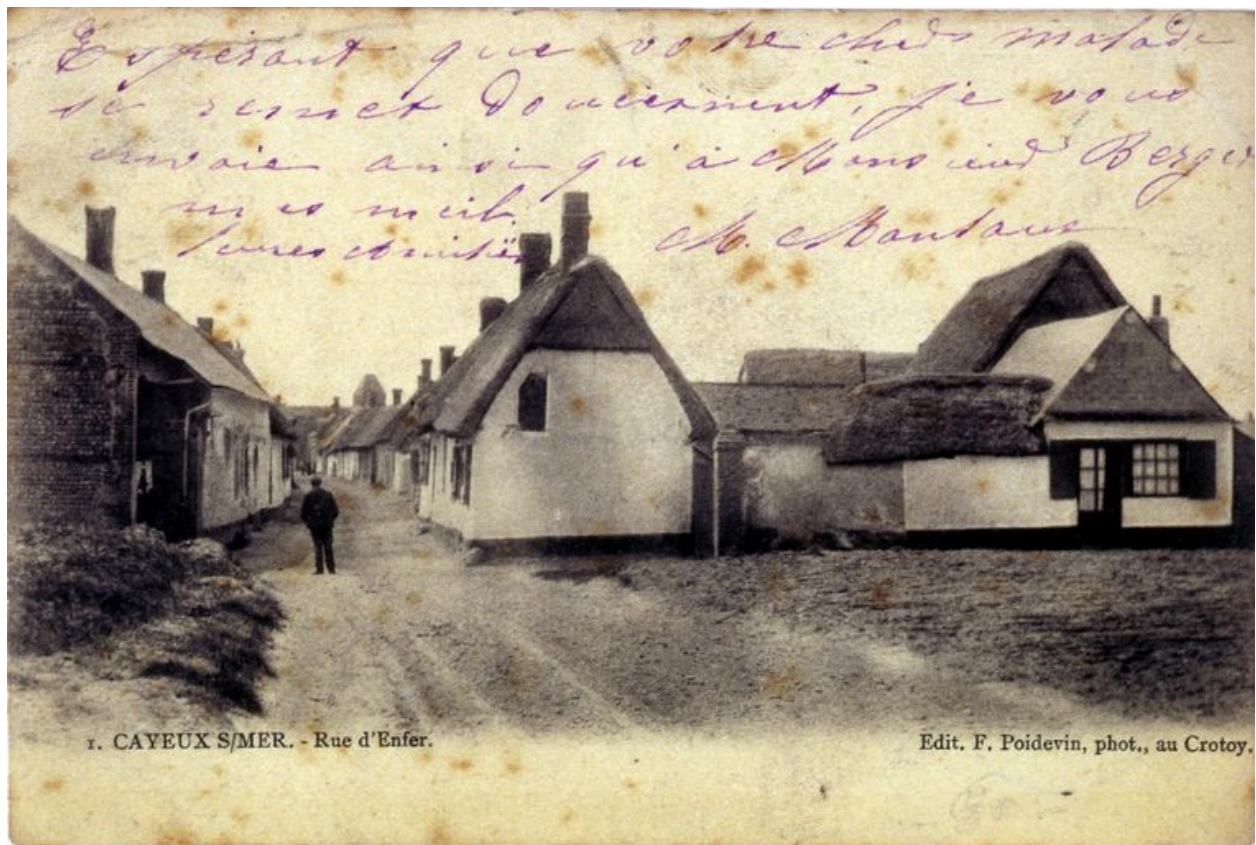 Espérant que votre cher malade
se remet doucement, je vous
envoie ainsi qu'à Monsieur Berger
mes meil
leures Amitiés M.
1. CAYEUX S/MER. - Rue d'Enfer.
Edit. F. Poidevin, phot., au Crotoy.